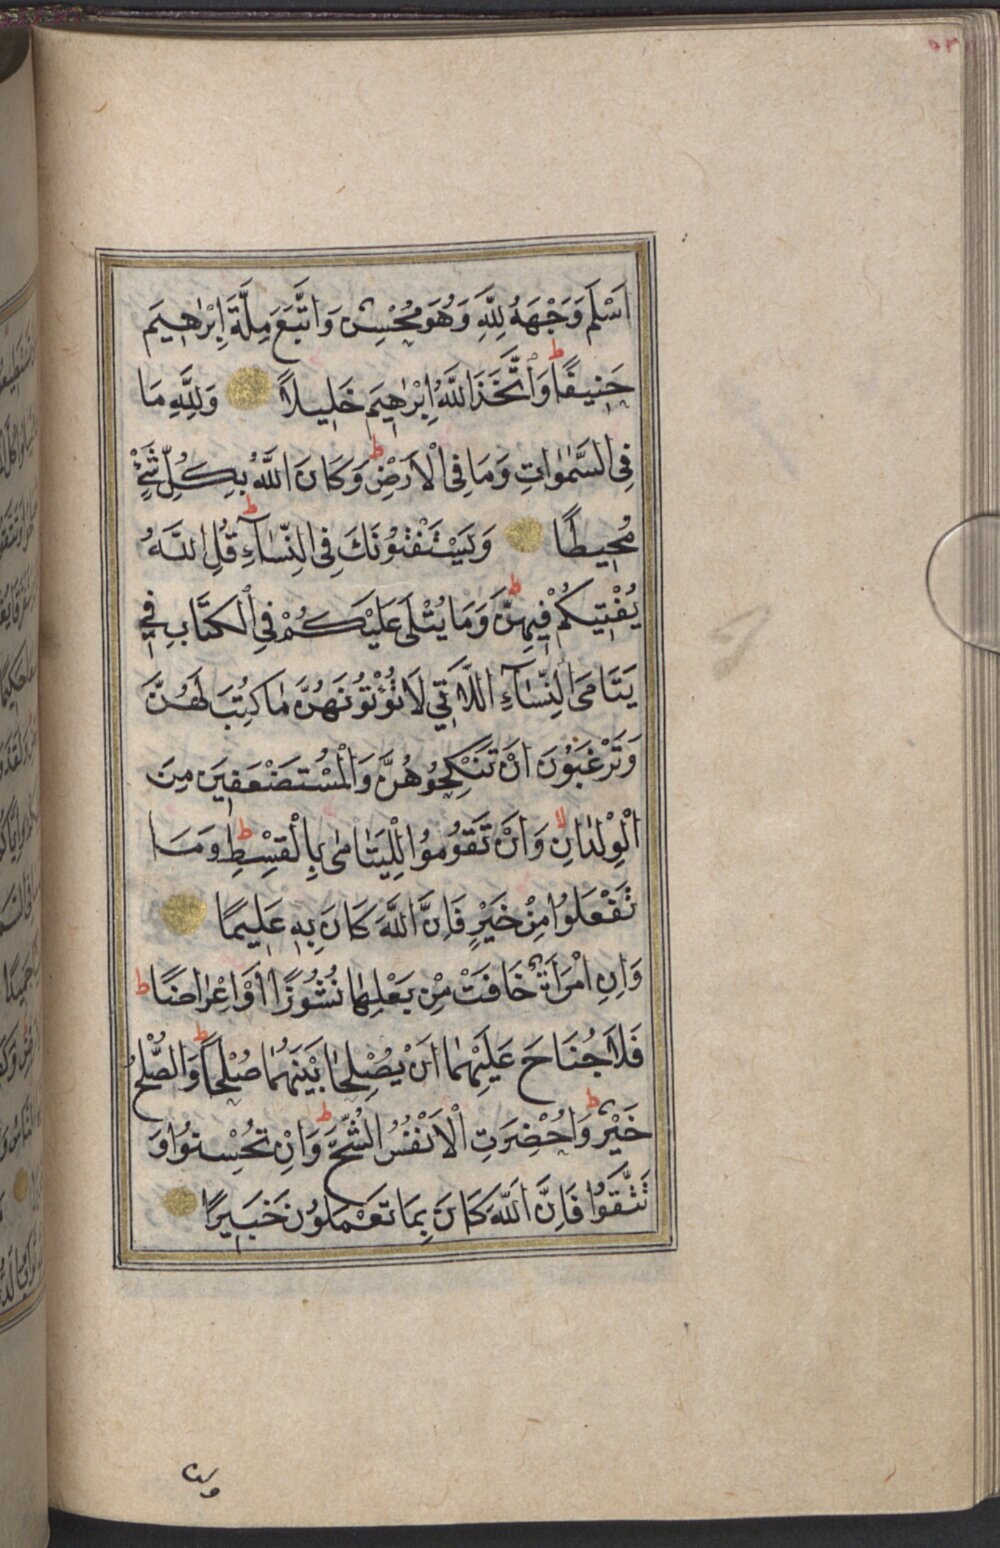 اَسْلَمَ وَجْهَهُ لِلّٰهِ وَهُوَ مُحْسِنٌ وَاتَّبَعَ مِلَّةَ اِبْرٰهِيمَ
حَنِيفًا ط وَاتَّخَذَ اللّٰهُ اِبْرٰهِيمَ خَلِيلًا وَلِلّٰهِ مَا
فِي السَّمٰوَاتِ وَمَا فِي الْاَرْضِ ط وَكَانَ اللّٰهُ بِكُلِّ شَيْءٍ
مُحِيطًا وَيَسْتَفْتُونَكَ فِي النِّسَآءِ ط قُلِ اللّٰهُ
يُفْتِيكُمْ فِيهِنَّ ط وَمَا يُتْلٰى عَلَيْكُمْ فِي الْكِتَابِ فِي
يَتَامَى النِّسَآءِ اللَّاتِي لَا تُؤْتُونَهُنَّ مَا كُتِبَ لَهُنَّ
وَتَرْغَبُونَ اَنْ تَنْكِحُوهُنَّ وَالْمُسْتَضْعَفِينَ مِنَ
الْوِلْدَانِ لا وَاَنْ تَقُومُوا لِلْيَتَامٰى بِالْقِسْطِ ط وَمَا
تَفْعَلُوا مِنْ خَيْرٍ فَاِنَّ اللّٰهَ كَانَ بِهٖ عَلِيمًا
وَاِنِ امْرَاَةٌ خَافَتْ مِنْ بَعْلِهَا نُشُوزًا اَوْ اِعْرَاضًا ط
فَلَا جُنَاحَ عَلَيْهِمَا اَنْ يُصْلِحَا بَيْنَهُمَا صُلْحًا ط وَالصُّلْحُ
خَيْرٌ ط وَاُحْضِرَتِ الْاَنْفُسُ الشُّحَّ ط وَاِنْ تُحْسِنُوا وَ
تَتَّقُوا فَاِنَّ اللّٰهَ كَانَ بِمَا تَعْمَلُونَ خَبِيرًا